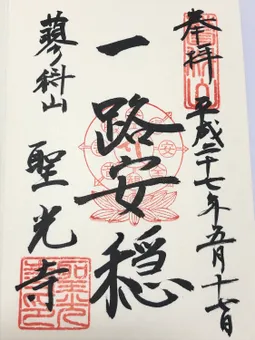 奉拝
平成二十七年五月十七日
一路安穏
蓼科山
聖光寺